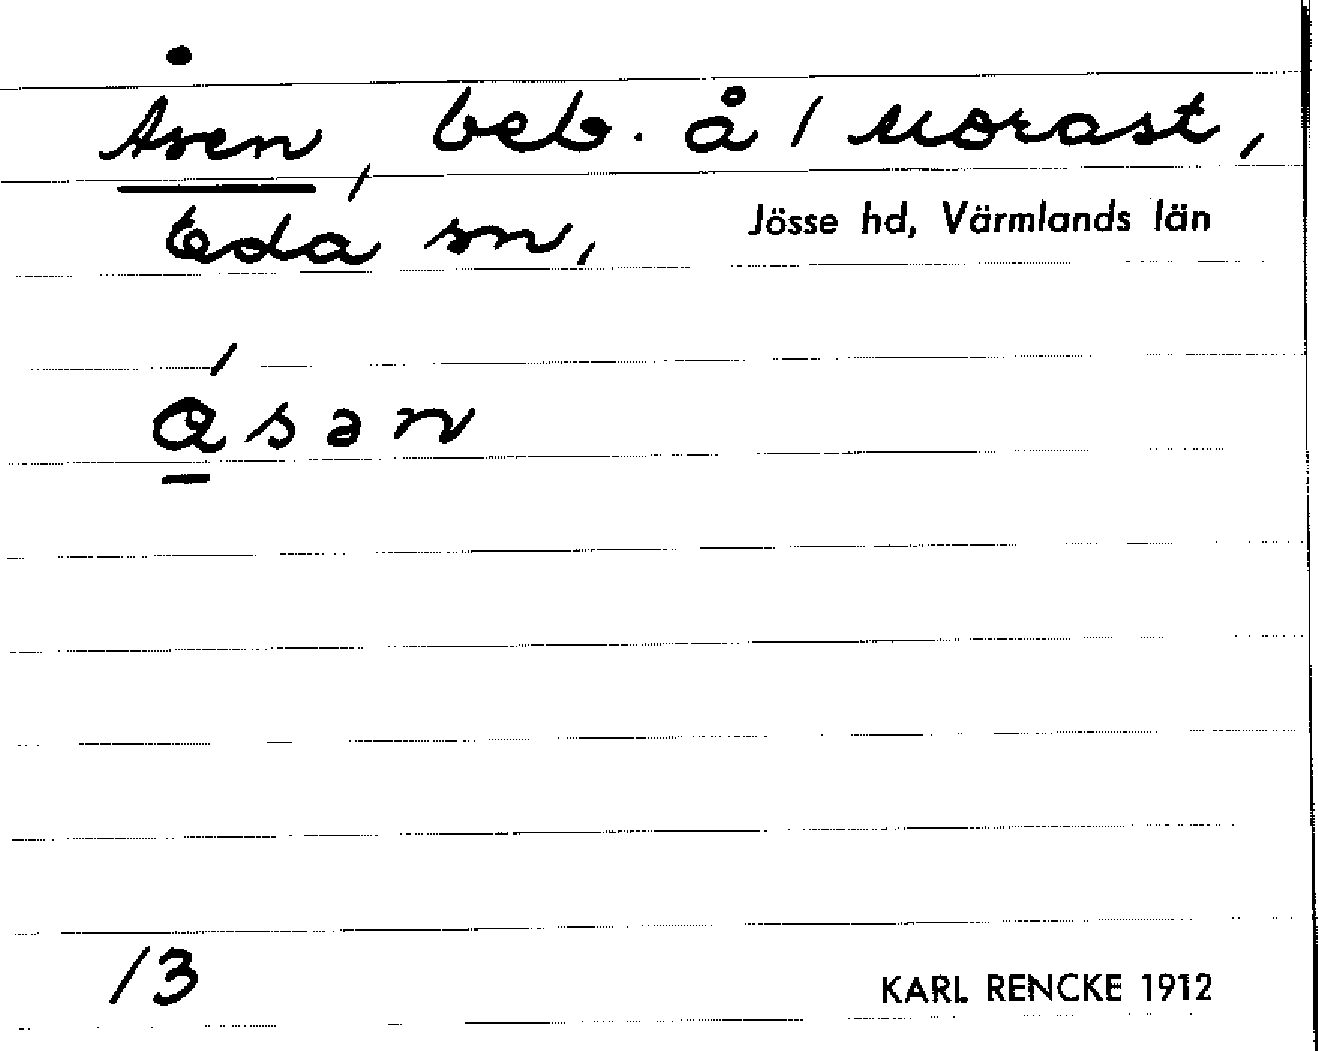 Åsen, beb. å 1 Morast,
Eda sn, Jösse hd, Värmlands län
ɑ́sən
13
KARL RENCKE 1912